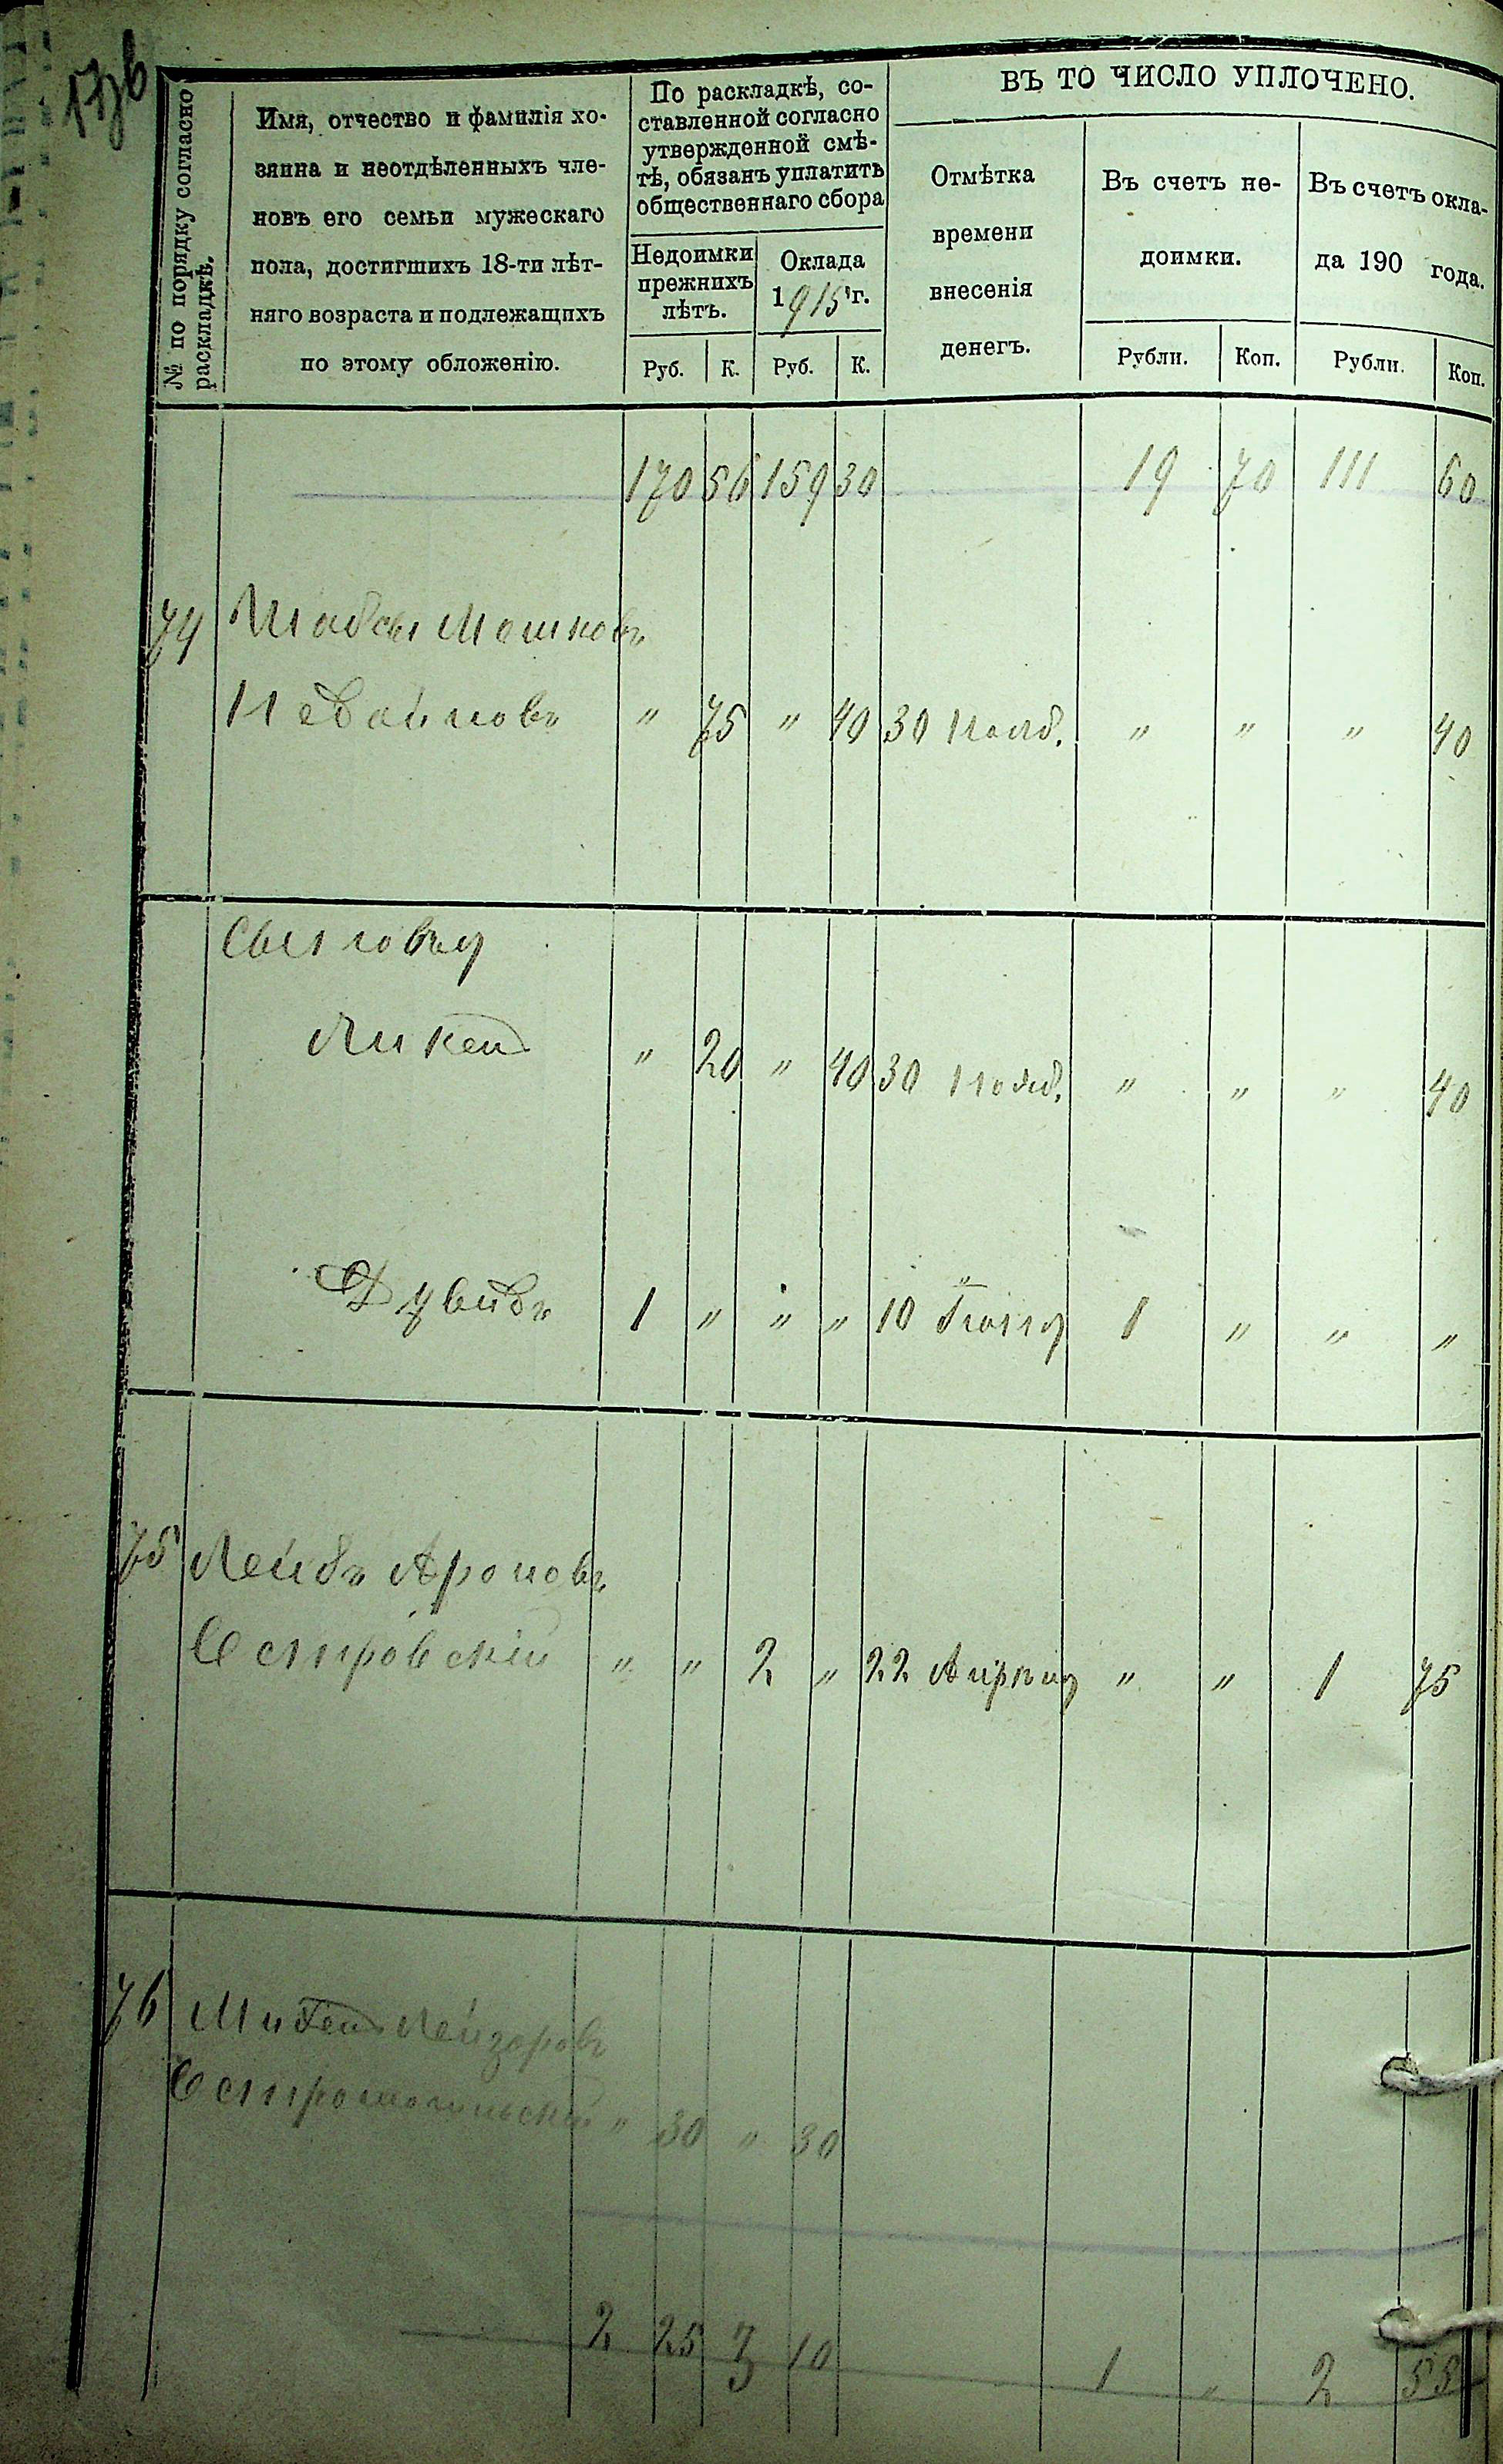 № по порядку согласно
раскладкѣ.
Имя, отчество и фамилія хо-
зяина и неотдѣленныхъ чле-
новъ его семьи мужескаго
пола, достигшихъ 18-ти лѣт-
няго возраста и подлежащихъ
по этому обложенію.
По раскладкѣ, со-
ставленной согласно
утвержденной смѣ-
тѣ, обязанъ уплатить
общественнаго сбора
Недоимки
прежнихъ
лѣтъ.
Оклада
1915 г.
Руб. К. Руб. К.
ВЪ ТО ЧИСЛО УПЛОЧЕНО.
Отмѣтка
времени
внесенія
денегъ.
Въ счетъ не-
доимки.
Рубли. Коп.
Въ счетъ окла-
да 190 года.
Рубли. Коп.
170 56 159 30 19 70 111 60
74 Шабсы Мошковъ
" 75 " 40 30 Нояб. " " " 40
Сыновья
" 20 " 40 30 Нояб. " " " 40
1 " " " 10 1 " " "
75 Лейба Ароновъ
Островскій " " 2 " 22 Апрѣля " " 1 75
76 Лейзоровъ
Остромогильскій " 30 " 30
2 25 3 10 1 " 2 55